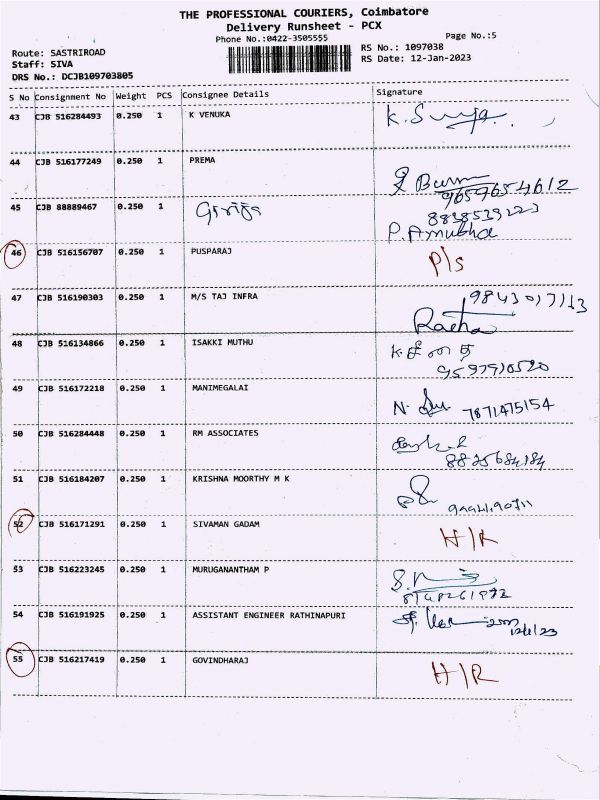 THE PROFESSIONAL COURIERS, Coimbatore
Delivery Runsheet - PCX
Phone No.:0422-3505555
Page No.:5
Route: SASTRIROAD
RS No.: 1097038
Staff: SIVA
RS Date: 12-Jan-2023
DRS No.: DCJB109703805
S No Consignment No Weight PCS Consignee Details Signature
43 CJB 516284493 0.250 1 K VENUKA K. Surya.
44 CJB 516177249 0.250 1 PREMA
9659654612
45 CJB 88889467 0.250 1 Girija
8838539223
P. Amutha
46 CJB 516156707 0.250 1 PUSPARAJ P/s
47 CJB 516190303 0.250 1 M/S TAJ INFRA
Radha
48 CJB 516134866 0.250 1 ISAKKI MUTHU
49 CJB 516172218 0.250 1 MANIMEGALAI 7871475154
50 CJB 516284448 0.250 1 RM ASSOCIATES
8825684184
51 CJB 516184207 0.250 1 KRISHNA MOORTHY M K
52 CJB 516171291 0.250 1 SIVAMAN GADAM H/R
53 CJB 516223245 0.250 1 MURUGANANTHAM P
54 CJB 516191925 0.250 1 ASSISTANT ENGINEER RATHINAPURI
55 CJB 516217419 0.250 1 GOVINDHARAJ H/R